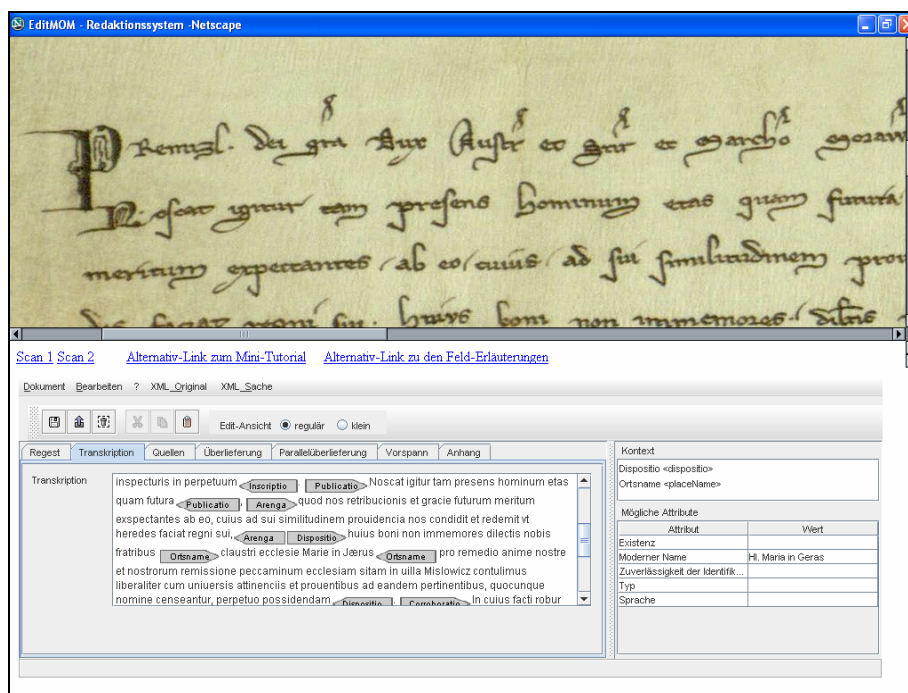 EditMOM - Redaktionssystem -Netscape
PRemizl. dei gra Dux Austr et Stir et Marcho Moraw
Noscat igitur tam presens hominum etas quam futura
meritum expectantes ab eo cuius ad sui similitudinem prou
des faciat regni sui. huius boni non immemores.
Scan 1 Scan 2 Alternativ-Link zum Mini-Tutorial Alternativ-Link zu den Feld-Erläuterungen
Dokument Bearbeiten ? XML_Original XML_Sache
Edit-Ansicht regulär klein
Regest Transkription Quellen Überlieferung Parallelüberlieferung Vorspann Anhang
Transkription
inspecturis in perpetuum Inscriptio , Publicatio Noscat igitur tam presens hominum etas
quam futura Publicatio , Arenga quod nos retribucionis et gracie futurum meritum
exspectantes ab eo, cuius ad sui similitudinem prouidencia nos condidit et redemit vt
heredes faciat regni sui, Arenga Dispositio huius boni non immemores dilectis nobis
fratribus Ortsname claustri ecclesie Marie in Jærus Ortsname pro remedio anime nostre
et nostrorum remissione peccaminum ecclesiam sitam in uilla Mislowicz contulimus
liberaliter cum uniuersis attinenciis et prouentibus ad eandem pertinentibus, quocunque
nomine censeantur, perpetuo possidendam Dispositio , Corroboratio In cuius facti robur
Kontext
Dispositio <dispositio>
Ortsname <placeName>
Mögliche Attribute
Attribut Wert
Existenz
Moderner Name Hl. Maria in Geras
Zuverlässigkeit der Identifik...
Typ
Sprache